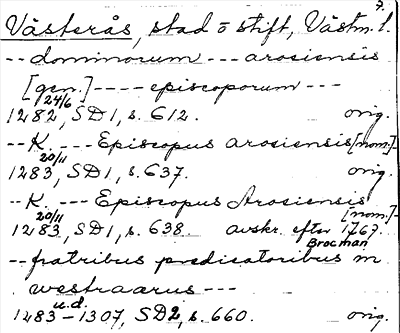 7.
Västerås, stad o stift, Västm. l.
-- dominorum --- arosiensis
[gen.] ---- episcoporum ---
24/6
1282, SD1, s. 612. orig.
-- K. --- Episcopus arosiensis [nom.] -
20/11
1283, SD1, s. 637. orig.
-- K. --- Episcopus Arosiensis
[nom.] -
20/11
1283, SD1, s. 638. avskr. efter 1767.
Brocman
-- fratribus predicatoribus m
westraarus ---
u.d.
1283 - 1307, SD2, s. 660. orig.